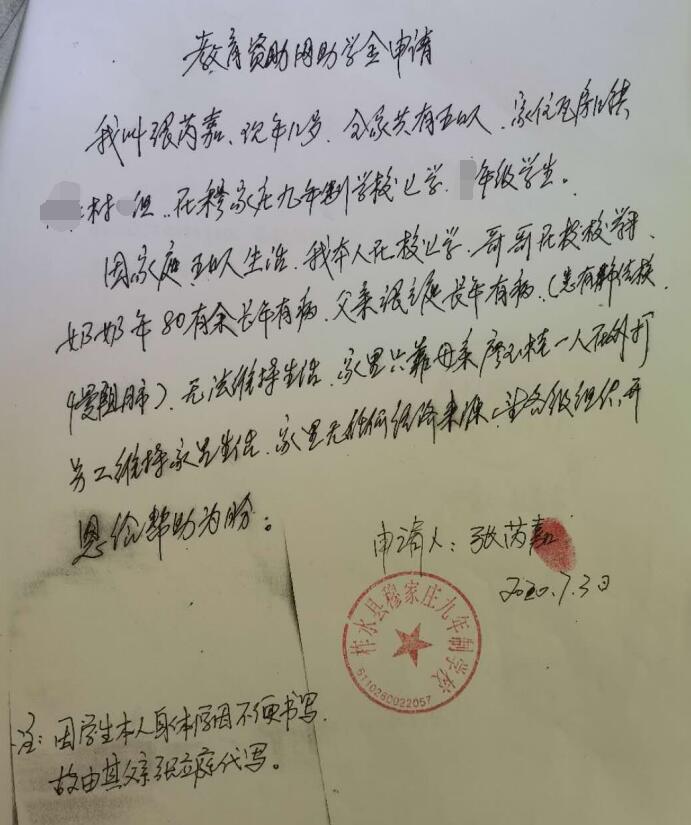 教育资助助学金申请
我叫张芮嘉、现年12岁、全家共有五口人、家住瓦房口镇
村 组、在穆家庄九年制学校上学 年级学生。
因家庭五口人生活、我本人在校上学、哥哥在校
奶奶年80有余长年有病、父亲张立庭长年有病、(患有肺结核
慢阻肺)、无法维持生活、家里只靠母亲 一人在外打
劳工维持家里生活、家里无任何经济来源、望各级组织、开
恩给帮助为盼。
申请人：张芮嘉
2020.7.3日
柞水县穆家庄九年制学校
6110260022057
注：因学生本人身体原因不便书写.
故由其父亲张立庭代写。